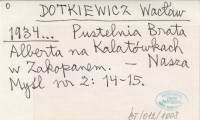 0
DOTKIEWICZ Wacław
1934... Pustelnia Brata
Alberta na Kalatówkach
w Zakopanem. – Nasza
Myśl nr 2: 14-15.